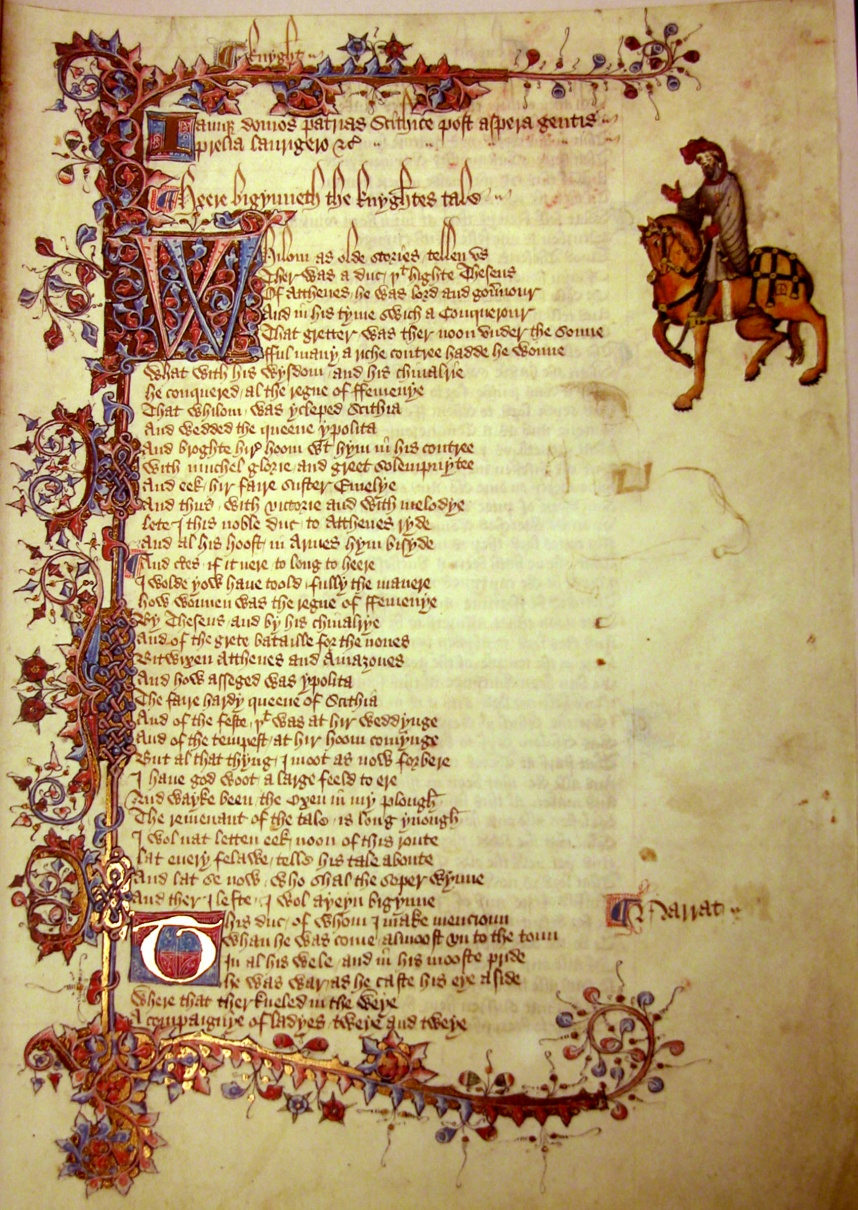 ¶ Knyght
Iamque domos patrias Scithice post aspera gentis
prelia laurigero &c
¶ Heere bigynneth the knyghtes tale
Whilom as olde stories / tellen vs
Ther was a duc / þt highte Theseus
Of Atthenes / he was lord and gouernour
And in his tyme swich a Conquerour
That gretter was ther noon vnder the sonne
fful many a riche contree hadde he wonne
What with his wysdom / and his chiualrie
he conquered / al the regne of ffemenye
That whilom / was ycleped Scithia
And wedded the queene ypolita
And broghte hir hoom wt hym in his contree
With muchel glorie / and greet solempnytee
And eek / hir faire suster Emelye
And thus / with victorie and with melodye
lete I this noble duc / to Atthenes ryde
And al his hoost / in Armes hym bisyde
¶ And certes / if it nere to long to heere
I wolde yow haue toold / fully the manere
how wonnen was the regne of ffemenye
By Theseus / and by his chiualrye
And of the grete bataille for the nones
Bitwixen Atthenes and Amazones
And how asseged was ypolita
The faire hardy queene of Scithia
And of the feste / þt was at hir weddynge
And of the tempest / at hir hoom comynge
But al that thyng / I moot as now forbere
I haue god woot / a large feeld to ere
And wayke been / the Oxen in my plough
The remenant of the tale / is long ynough
I wol nat letten eek / noon of this route
lat euery felawe / telle his tale aboute
And lat se now / who shal the soper wynne
And ther I lefte / I wol ayeyn bigynne
¶ Narrat
This duc / of whom I make mencioun
Whan he was come / almoost vn to the toun
In al his wele / and in his mooste pride
he was war / as he caste his eye aside
Where that ther kneled in the weye
A compaignye of ladyes / tweye and tweye